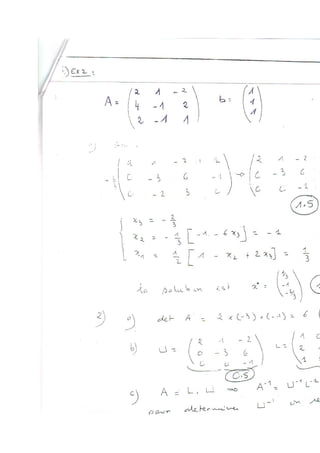 EX2 :
A = ( 2 1 -2 ; 4 -1 2 ; 2 -1 1 ) b = ( 1 ; 1 ; 1 )
1)
( 2 1 -2 ; 0 -3 6 -1 ; 0 -2 3 0 ) → ( 2 1 -2 ; 0 -3 6 ; 0 0 -1 )
1.5
x3 = - 2/3
x2 = - 1/3 [ -1 - 6x3 ] = -1
x1 = 1/2 [ 1 - x2 + 2x3 ] = 1/3
la solution est x* = ( 1/3 ; -1 ; -2/3 )
2) a) det A = 2 x (-3) x (-1) = 6
b) U = ( 2 1 -2 ; 0 -3 6 ; 0 0 -1 ) L =
0.5
c) A = L.U ⇒ A^-1 = U^-1 L^-1
pour determiner U^-1 on